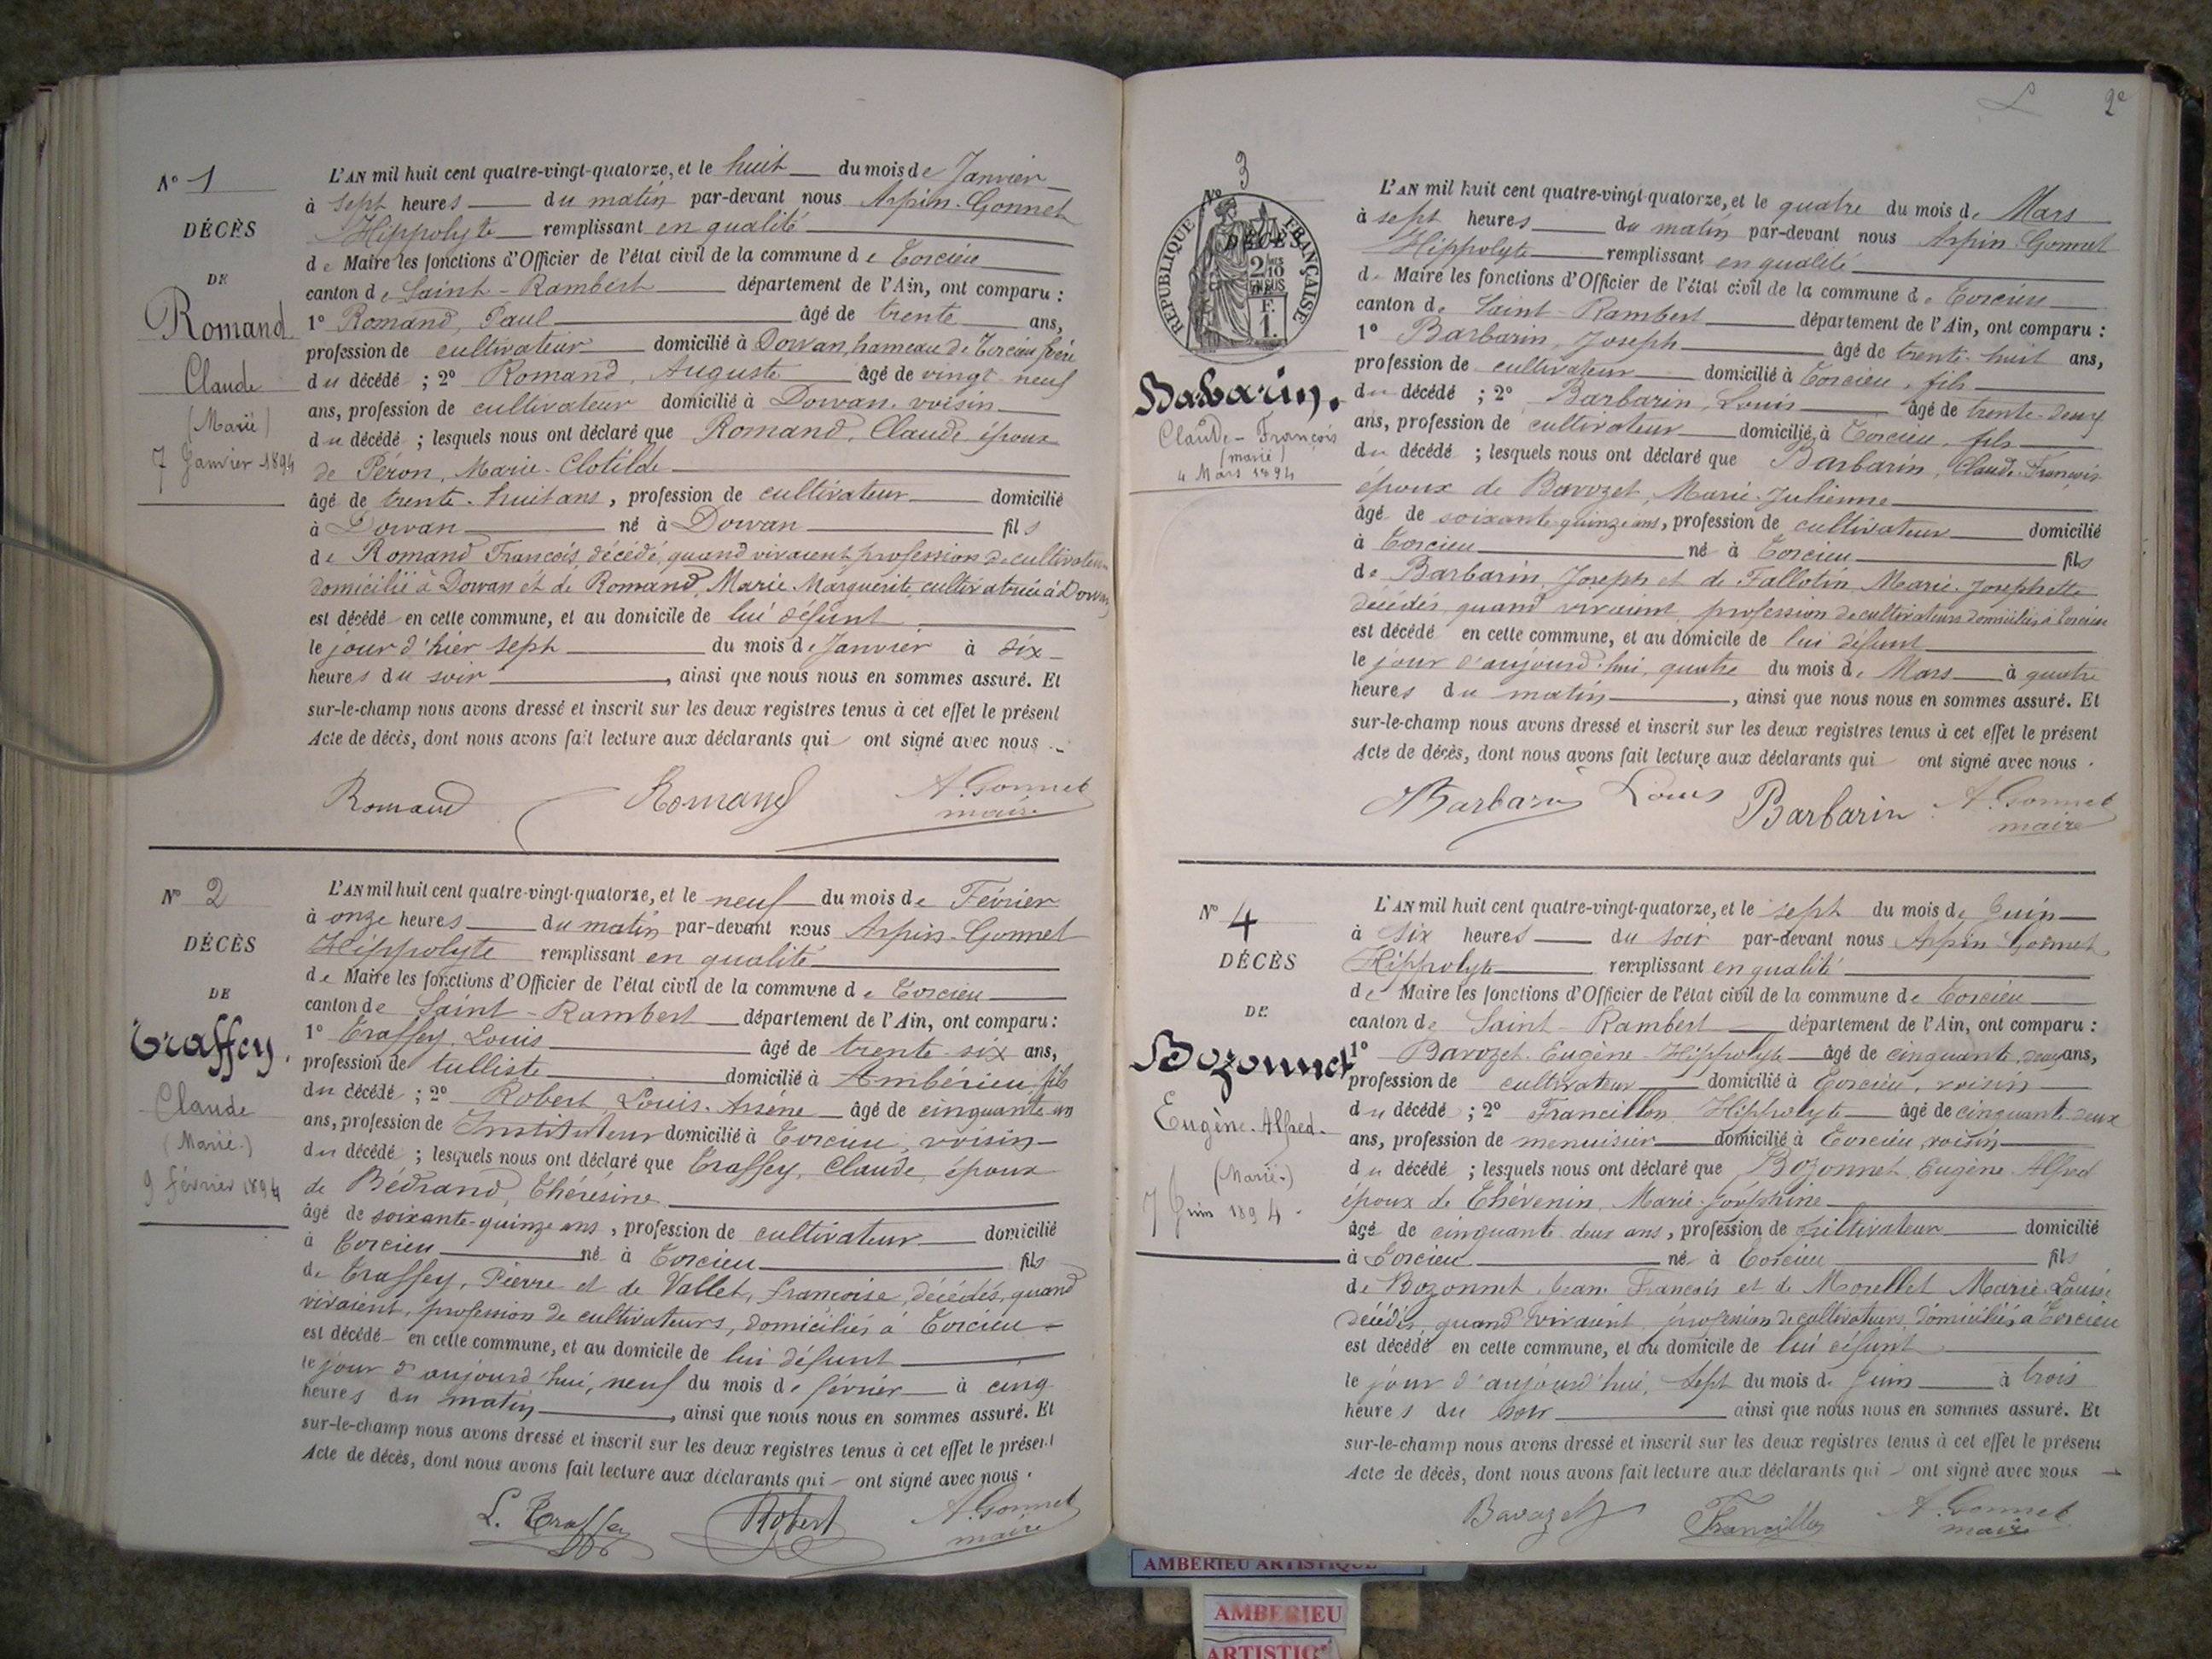 N° 1
DÉCÈS
DE
Romand
Claude
(Marié)
7 Janvier 1894
L'AN mil huit cent quatre-vingt-quatorze, et le huit du mois de Janvier
à sept heures du matin par-devant nous Arpin-Gonnet
Hippolyte remplissant en qualité
de Maire les fonctions d'Officier de l'état civil de la commune de Torcieu
canton de Saint-Rambert département de l'Ain, ont comparu :
1° Romand, Paul âgé de trente ans,
profession de cultivateur domicilié à Dorvan, hameau de Torcieu, frère
du décédé ; 2° Romand, Auguste âgé de vingt neuf
ans, profession de cultivateur domicilié à Dorvan, voisin
du décédé ; lesquels nous ont déclaré que Romand, Claude, époux
de Péron, Marie-Clotilde
âgé de trente-huit ans, profession de cultivateur domicilié
à Dorvan né à Dorvan fils
de Romand François, décédé, quand vivaient profession de cultivateur
domicilié à Dorvan et de Romand, Marie-Marguerite, cultivatrice à Dorvan
est décédé en cette commune, et au domicile de lui défunt
le jour d'hier sept du mois de Janvier à six
heures du soir, ainsi que nous nous en sommes assuré. Et
sur-le-champ nous avons dressé et inscrit sur les deux registres tenus à cet effet le présent
Acte de décès, dont nous avons fait lecture aux déclarants qui ont signé avec nous.
Romand Romand A. Gonnet
maire
N° 2
DÉCÈS
DE
Traffey.
Claude
(Marié.)
9 février 1894
L'AN mil huit cent quatre-vingt-quatorze, et le neuf du mois de Février
à onze heures du matin par-devant nous Arpin-Gonnet
Hippolyte remplissant en qualité
de Maire les fonctions d'Officier de l'état civil de la commune de Torcieu
canton de Saint-Rambert département de l'Ain, ont comparu :
1° Traffey, Louis âgé de trente-six ans,
profession de tulliste domicilié à Ambérieu, fils
du décédé ; 2° Robert Louis-Arsène âgé de cinquante un
ans, profession de Instituteur domicilié à Torcieu, voisin
du décédé ; lesquels nous ont déclaré que Traffey, Claude, époux
de Bédrand, Thérésine
âgé de soixante-quinze ans, profession de cultivateur domicilié
à Torcieu né à Torcieu fils
de Traffey, Pierre et de Vallet, françoise, décédés, quand
vivaient, profession de cultivateurs, domiciliés à Torcieu
est décédé en cette commune, et au domicile de lui défunt
le jour d'aujourd'hui, neuf du mois de février à cinq
heures du matin, ainsi que nous nous en sommes assuré. Et
sur-le-champ nous avons dressé et inscrit sur les deux registres tenus à cet effet le présent
Acte de décès, dont nous avons fait lecture aux déclarants qui ont signé avec nous.
L. Traffey Robert A. Gonnet
maire
2e
N° 3
RÉPUBLIQUE FRANÇAISE
DÉCÈS
2/10
EN SUS
F.
1.
Barbarin.
Claude-François
(marié)
4 Mars 1894
L'AN mil huit cent quatre-vingt-quatorze, et le quatre du mois de Mars
à sept heures du matin par-devant nous Arpin-Gonnet
Hippolyte remplissant en qualité
de Maire les fonctions d'Officier de l'état civil de la commune de Torcieu
canton de Saint-Rambert département de l'Ain, ont comparu :
1° Barbarin, Joseph âgé de trente-huit ans,
profession de cultivateur domicilié à Torcieu, fils
du décédé ; 2° Barbarin, Louis âgé de trente-deux
ans, profession de cultivateur domicilié à Torcieu, fils
du décédé ; lesquels nous ont déclaré que Barbarin, Claude-François
époux de Bavozet, Marie-Julienne
âgé de soixante-quinze ans, profession de cultivateur domicilié
à Torcieu né à Torcieu fils
de Barbarin, Joseph et de Fallotin, Marie-Josephette
décédés, quand vivaient, profession de cultivateurs domiciliés à Torcieu
est décédé en cette commune, et au domicile de lui défunt
le jour d'aujourd'hui, quatre du mois de Mars à quatre
heures du matin, ainsi que nous nous en sommes assuré. Et
sur-le-champ nous avons dressé et inscrit sur les deux registres tenus à cet effet le présent
Acte de décès, dont nous avons fait lecture aux déclarants qui ont signé avec nous.
Barbarin Louis Barbarin A. Gonnet
maire
N° 4
DÉCÈS
DE
Bozonnet
Eugène-Alfred
(Marié.)
7 Juin 1894.
L'AN mil huit cent quatre-vingt-quatorze, et le sept du mois de Juin
à six heures du soir par-devant nous Arpin-Gonnet
Hippolyte remplissant en qualité
de Maire les fonctions d'Officier de l'état civil de la commune de Torcieu
canton de Saint-Rambert département de l'Ain, ont comparu :
1° Bavozet, Eugène-Hippolyte âgé de cinquante-deux ans,
profession de cultivateur domicilié à Torcieu, voisin
du décédé ; 2° Francillon Hippolyte âgé de cinquante-deux
ans, profession de menuisier domicilié à Torcieu, voisin
du décédé ; lesquels nous ont déclaré que Bozonnet, Eugène-Alfred
époux de Thévenin, Marie-Joséphine
âgé de cinquante-deux ans, profession de cultivateur domicilié
à Torcieu né à Torcieu fils
de Bozonnet, Jean-François et de Morellet Marie-Louise
décédés, quand vivaient, profession de cultivateurs, domiciliés à Torcieu
est décédé en cette commune, et au domicile de lui défunt
le jour d'aujourd'hui, sept du mois de Juin à trois
heures du soir ainsi que nous nous en sommes assuré. Et
sur-le-champ nous avons dressé et inscrit sur les deux registres tenus à cet effet le présent
Acte de décès, dont nous avons fait lecture aux déclarants qui ont signé avec nous
Bavozet Francillon A. Gonnet
maire
AMBERIEU ARTISTIQUE
AMBERIEU
ARTISTIQ